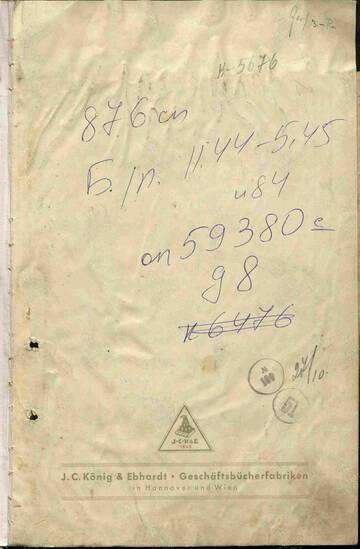 н-5676
876сп
Б./п. 11.44-5.45
и84
оп 59380с
д8
н 6476
N
100
24/10.
51
J·C·K&E
1845
J. C. König & Ebhardt • Geschäftsbücherfabriken
in Hannover und Wien